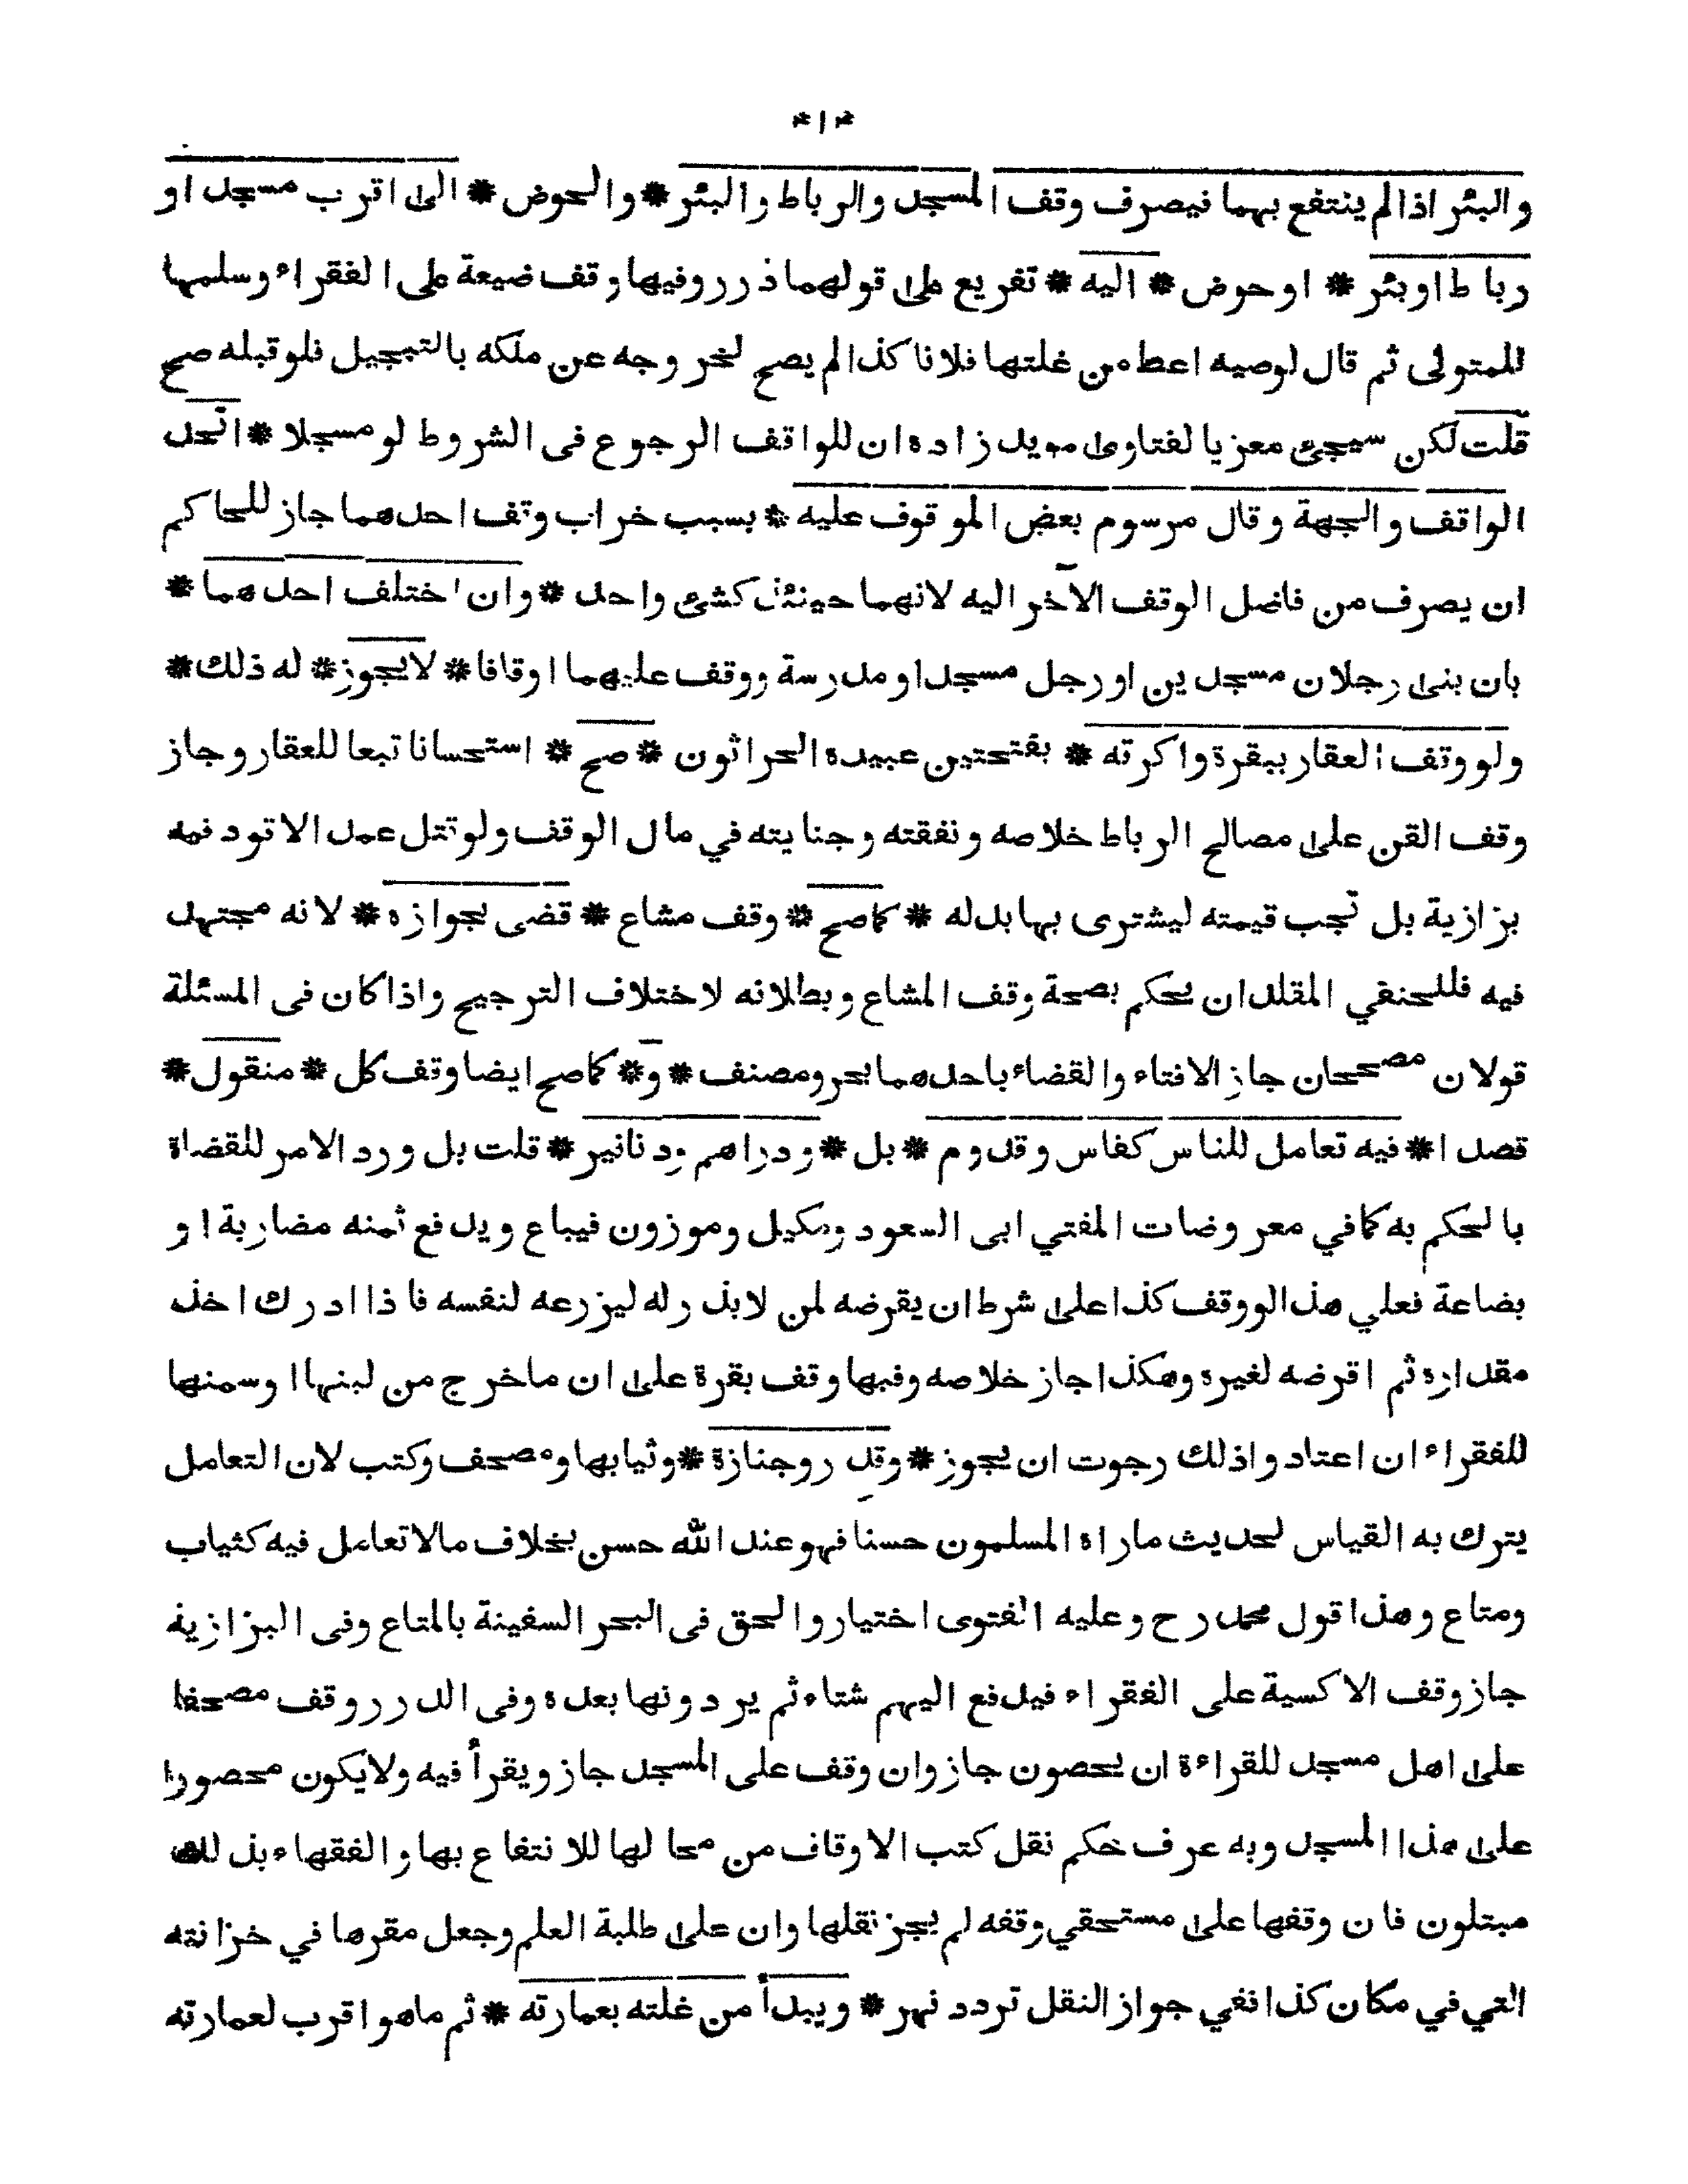 ۴۱۴
والبئر اذا لم ينتفع بهما فيصرف وقف المسجد والرباط والبئر * والحوض * الى اقرب مسجد او
رباط او بئر * او حوض * اليه * تفريع على قولهما درر وفيها وقف ضيعة على الفقراء وسلمها
للمتولى ثم قال لوصيه اعط من غلتها فلانا كذا لم يصح لخروجه عن ملكه بالتسجيل فلو قبله صح
قلت لكن سيجئ معزيا لفتاوى مويد زاده ان للواقف الرجوع فى الشروط لو مسجلا * اتحد
الواقف والجهة وقال مرسوم بعض الموقوف عليه * بسبب خراب وقف احدهما جاز للحاكم
ان يصرف من فاضل الوقف الآخر اليه لانهما حينئذ كشئ واحد * وان اختلف احدهما *
بان بنى رجلان مسجدين او رجل مسجدا ومدرسة ووقف عليهما اوقافا * لايجوز * له ذلك *
ولو وقف العقار ببقرة واكرته * بفتحتين عبيده الحراثون * صح * استحسانا تبعا للعقار وجاز
وقف القن على مصالح الرباط خلاصه ونفقته وجنايته في مال الوقف ولو قتل عمد الا قود فيه
بزازية بل تجب قيمته ليشترى بها بدله * كما صح * وقف مشاع * قضى بجوازه * لانه مجتهد
فيه فللحنفي المقلد ان يحكم بصحة وقف المشاع وبطلانه لاختلاف الترجيح واذا كان فى المسئلة
قولان مصححان جاز الافتاء والقضاء باحدهما بحر ومصنف * و * كما صح ايضا وقف كل * منقول *
قصدا * فيه تعامل للناس كفاس وقدوم * بل * ودراهم ودنانير * قلت بل ورد الامر للقضاة
بالحكم به كما في معروضات المفتي ابى السعود ومكيل وموزون فيباع ويدفع ثمنه مضاربة او
بضاعة فعلي هذا لو وقف كذا على شرط ان يقرضه لمن لا بذر له ليزرعه لنفسه فاذا ادرك اخذ
مقداره ثم اقرضه لغيره وهكذا جاز خلاصه وفيها وقف بقرة على ان ماخرج من لبنها اوسمنها
للفقراء ان اعتادوا ذلك رجوت ان يجوز * وقدر وجنازة * وثيابها ومصحف وكتب لان التعامل
يترك به القياس لحديث ماراه المسلمون حسنا فهو عند الله حسن بخلاف مالا تعامل فيه كثياب
ومتاع وهذا قول محمد رح وعليه الفتوى اختيار والحق فى البحر السفينة بالمتاع وفى البزازية
جاز وقف الاكسية على الفقراء فيدفع اليهم شتاء ثم يردونها بعده وفى الدرر وقف مصحفا
على اهل مسجد للقراءة ان يحصون جاز وان وقف على المسجد جاز ويقرأ فيه ولايكون محصورا
على هذا المسجد وبه عرف حكم نقل كتب الاوقاف من محالها للانتفاع بها والفقهاء بذلك
مبتلون فان وقفها على مستحقي وقفه لم يجز نقلها وان على طلبة العلم وجعل مقرها في خزانته
التي في مكان كذا ففي جواز النقل تردد نهر * ويبدأ من غلته بعمارته * ثم ماهو اقرب لعمارته